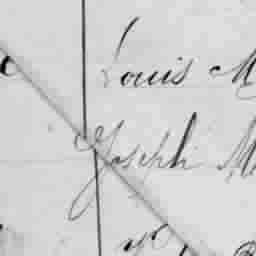 Louis M
Joseph M